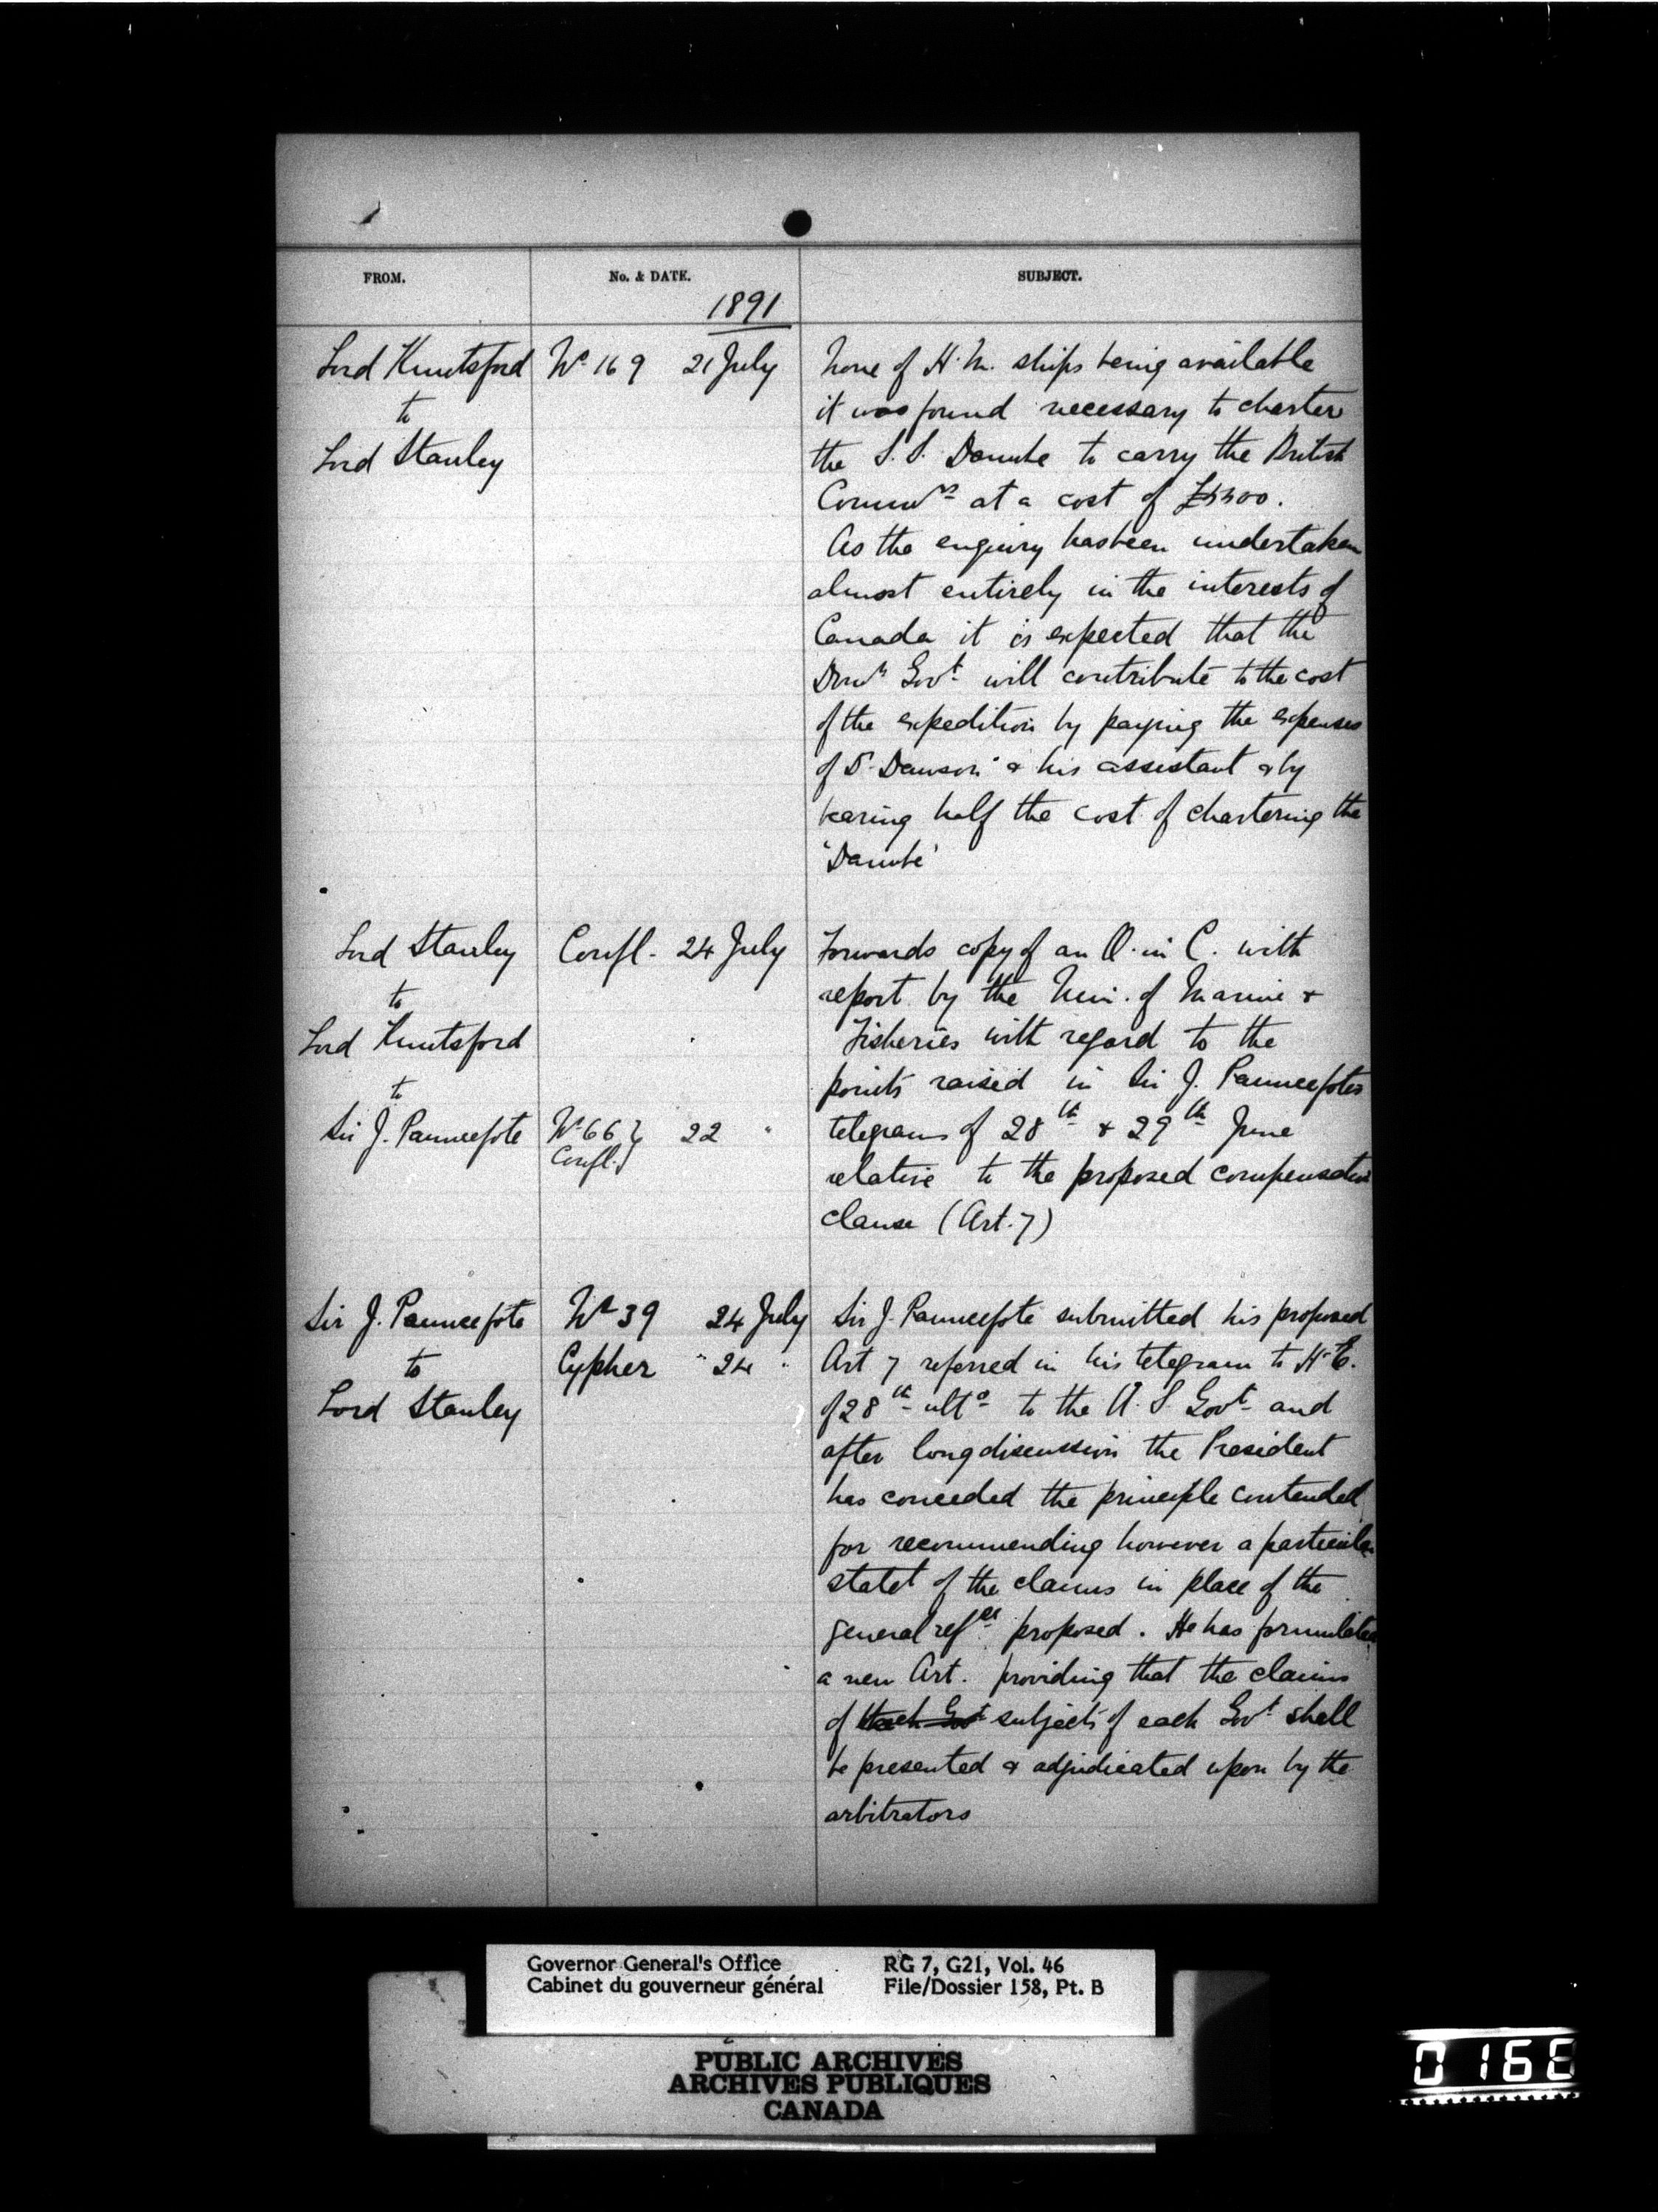 FROM. No. & DATE. SUBJECT.
1891
Lord Knutsford No 169 21 July None of H.M. ships being available
to it was found necessary to charter
Lord Stanley the S.S. Danube to carry the British
Commrs at a cost of
As the enquiry has been undertaken
almost entirely in the interests of
Canada it is expected that the
Domn Govt will contribute to the cost
of the expedition by paying the expenses
of Dr Dawson & his assistant & by
bearing half the cost of chartering the
'Danube'
Lord Stanley Confl. 24 July Forwards copy of an O. in C. with
to report by the Min. of Marine &
Lord Knutsford Fisheries with regard to the
to points raised in Sir J. Pauncefotes
Sir J. Pauncefote No 66 } 22 " telegrams of 28th & 29th June
Confl. } relative to the proposed compensation
clause (Art. 7)
Sir J. Pauncefote No 39 24 July Sir J. Pauncefote submitted his proposed
to Cypher " 24 " Art 7 referred in his telegram to H.E.
Lord Stanley of 28th ulto to the U.S. Govt and
after long discussion the President
has conceded the principle contended
for recommending however a particular
statet of the claims in place of the
general refce proposed. He has formulated
a new Art. providing that the claims
of subjects of each Govt shall
be presented & adjudicated upon by the
arbitrators
Governor General's Office RG 7, G21, Vol. 46
Cabinet du gouverneur général File/Dossier 158, Pt. B
PUBLIC ARCHIVES
ARCHIVES PUBLIQUES
CANADA